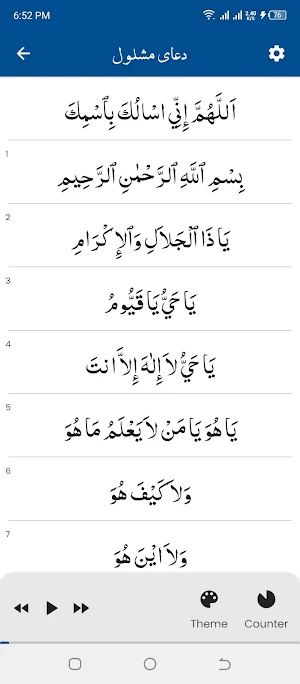 6:52 PM
2.40 K/s
76
دعای مشلول
اَللَّهُمَّ إِنِّي اسْالُكَ بِٱسْمِكَ
1
بِسْمِ ٱللَّهِ ٱلرَّحْمٰنِ ٱلرَّحِيمِ
2
يَا ذَا ٱلْجَلاَلِ وَٱلإِكْرَامِ
3
يَا حَيُّ يَا قَيُّومُ
4
يَا حَيُّ لاَ إِلٰهَ إِلاَّ انتَ
5
يَا هُوَ يَا مَنْ لاَ يَعْلَمُ مَا هُوَ
6
وَلاَ كَيْفَ هُوَ
7
وَلاَ ايْنَ هُوَ
Theme
Counter